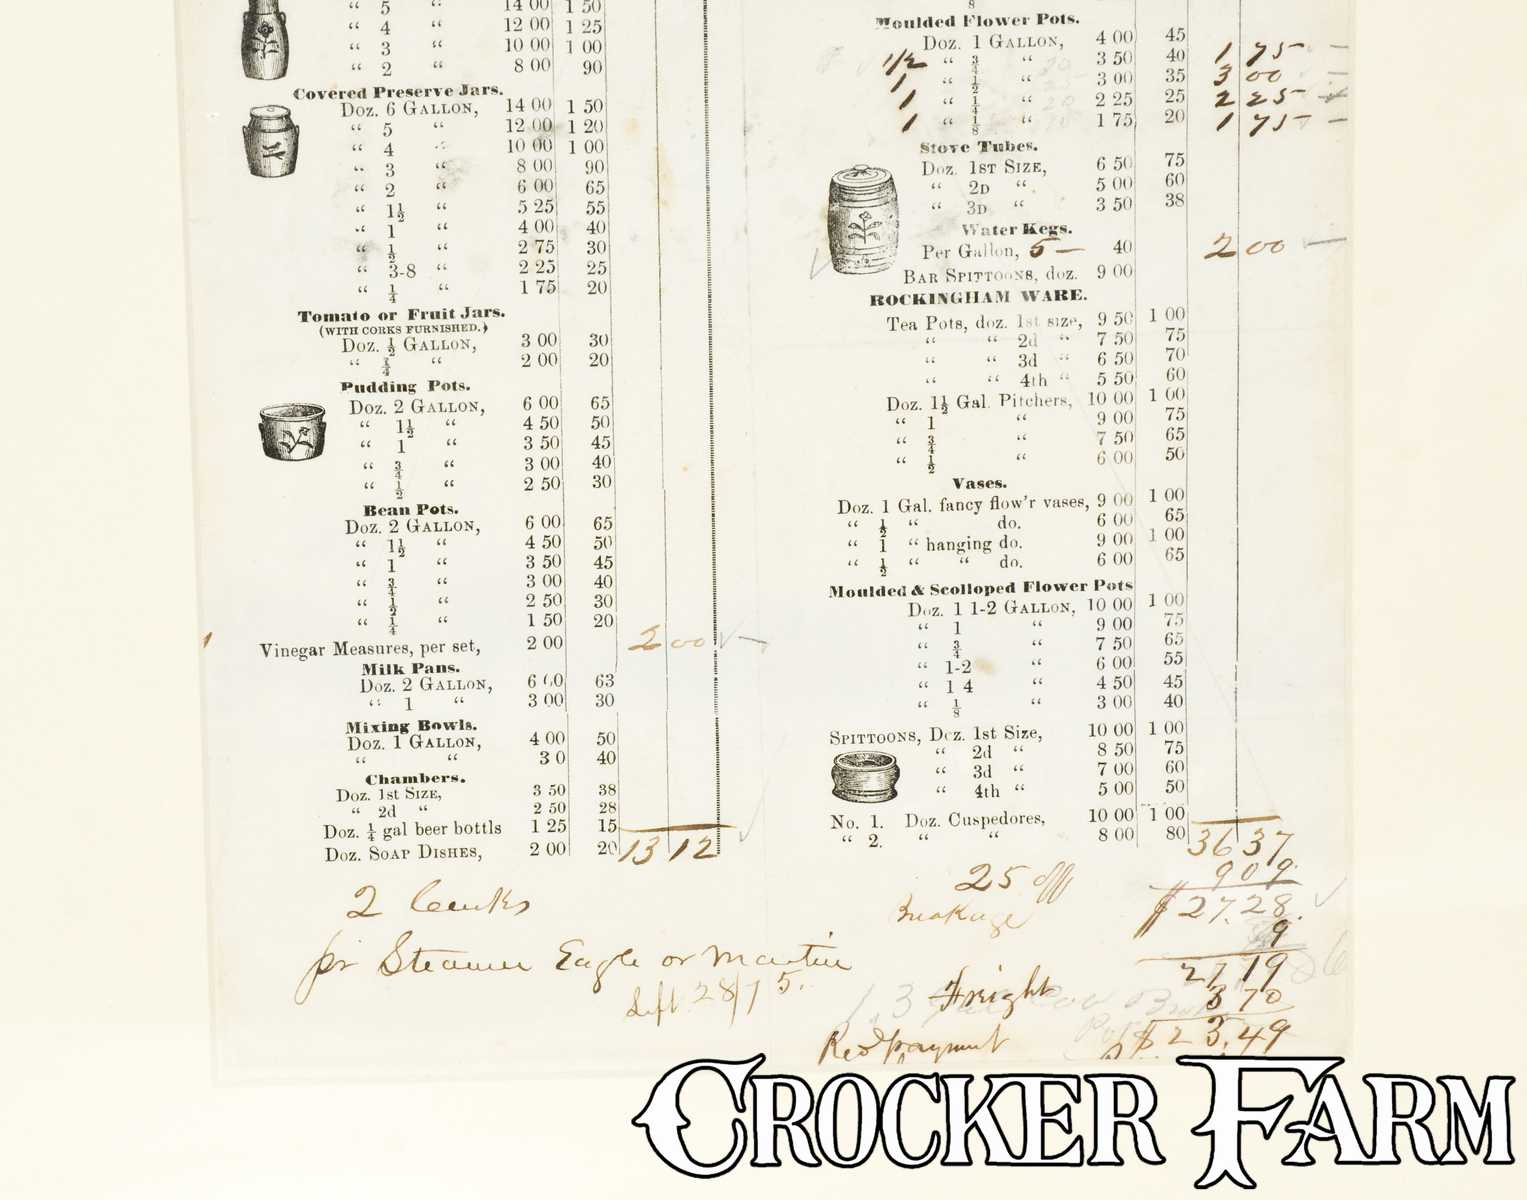 “ 5 “ 14 00 1 50
“ 4 “ 12 00 1 25
“ 3 “ 10 00 1 00
“ 2 “ 8 00 90
Covered Preserve Jars.
Doz. 6 Gallon, 14 00 1 50
“ 5 “ 12 00 1 20
“ 4 “ 10 00 1 00
“ 3 “ 8 00 90
“ 2 “ 6 00 65
“ 1½ “ 5 25 55
“ 1 “ 4 00 40
“ ½ “ 2 75 30
“ 3-8 “ 2 25 25
“ ¼ “ 1 75 20
Tomato or Fruit Jars.
(WITH CORKS FURNISHED.)
Doz. ½ Gallon, 3 00 30
“ ¼ “ 2 00 20
Pudding Pots.
Doz. 2 Gallon, 6 00 65
“ 1½ “ 4 50 50
“ 1 “ 3 50 45
“ ¾ “ 3 00 40
“ ½ “ 2 50 30
Bean Pots.
Doz. 2 Gallon, 6 00 65
“ 1½ “ 4 50 50
“ 1 “ 3 50 45
“ ¾ “ 3 00 40
“ ½ “ 2 50 30
“ ¼ “ 1 50 20
1 Vinegar Measures, per set, 2 00 2 00
Milk Pans.
Doz. 2 Gallon, 6 00 63
“ 1 “ 3 00 30
Mixing Bowls.
Doz. 1 Gallon, 4 00 50
“ “ 3 0 40
Chambers.
Doz. 1st Size, 3 50 38
“ 2d “ 2 50 28
Doz. ¼ gal beer bottls 1 25 15
Doz. Soap Dishes, 2 00 20 13 12
Moulded Flower Pots.
Doz. 1 Gallon, 4 00 45
1/2 “ ¾ “ 3 50 40 1 75
1 “ ½ “ 3 00 35 3 00
1 “ ¼ “ 2 25 25 2 25
1 “ ⅛ “ 1 75 20 1 75
Stove Tubes.
Doz. 1st Size, 6 50 75
“ 2d “ 5 00 60
“ 3d “ 3 50 38
Water Kegs.
Per Gallon, 5 — 40 2 00
Bar Spittoons, doz. 9 00
ROCKINGHAM WARE.
Tea Pots, doz. 1st size, 9 50 1 00
“ “ 2d “ 7 50 75
“ “ 3d “ 6 50 70
“ “ 4th “ 5 50 60
Doz. 1½ Gal. Pitchers, 10 00 1 00
“ 1 “ 9 00 75
“ ¾ “ 7 50 65
“ ½ “ 6 00 50
Vases.
Doz. 1 Gal. fancy flow'r vases, 9 00 1 00
“ ½ “ do. 6 00 65
“ 1 “ hanging do. 9 00 1 00
“ ½ “ “ do. 6 00 65
Moulded & Scolloped Flower Pots
Doz. 1 1-2 Gallon, 10 00 1 00
“ 1 “ 9 00 75
“ ¾ “ 7 50 65
“ 1-2 “ 6 00 55
“ 1 4 “ 4 50 45
“ ⅛ “ 3 00 40
Spittoons, Doz. 1st Size, 10 00 1 00
“ 2d “ 8 50 75
“ 3d “ 7 00 60
“ 4th “ 5 00 50
No. 1. Doz. Cuspedores, 10 00 1 00
“ 2. “ “ 8 00 80 36 37
25 off 9 09
$27.28
Breakage 9
27 19
Freight 3 70
Recd payment $23.49
2 Casks
pr Steamer Eagle or Martin
Sept 28/75.
CROCKER FARM